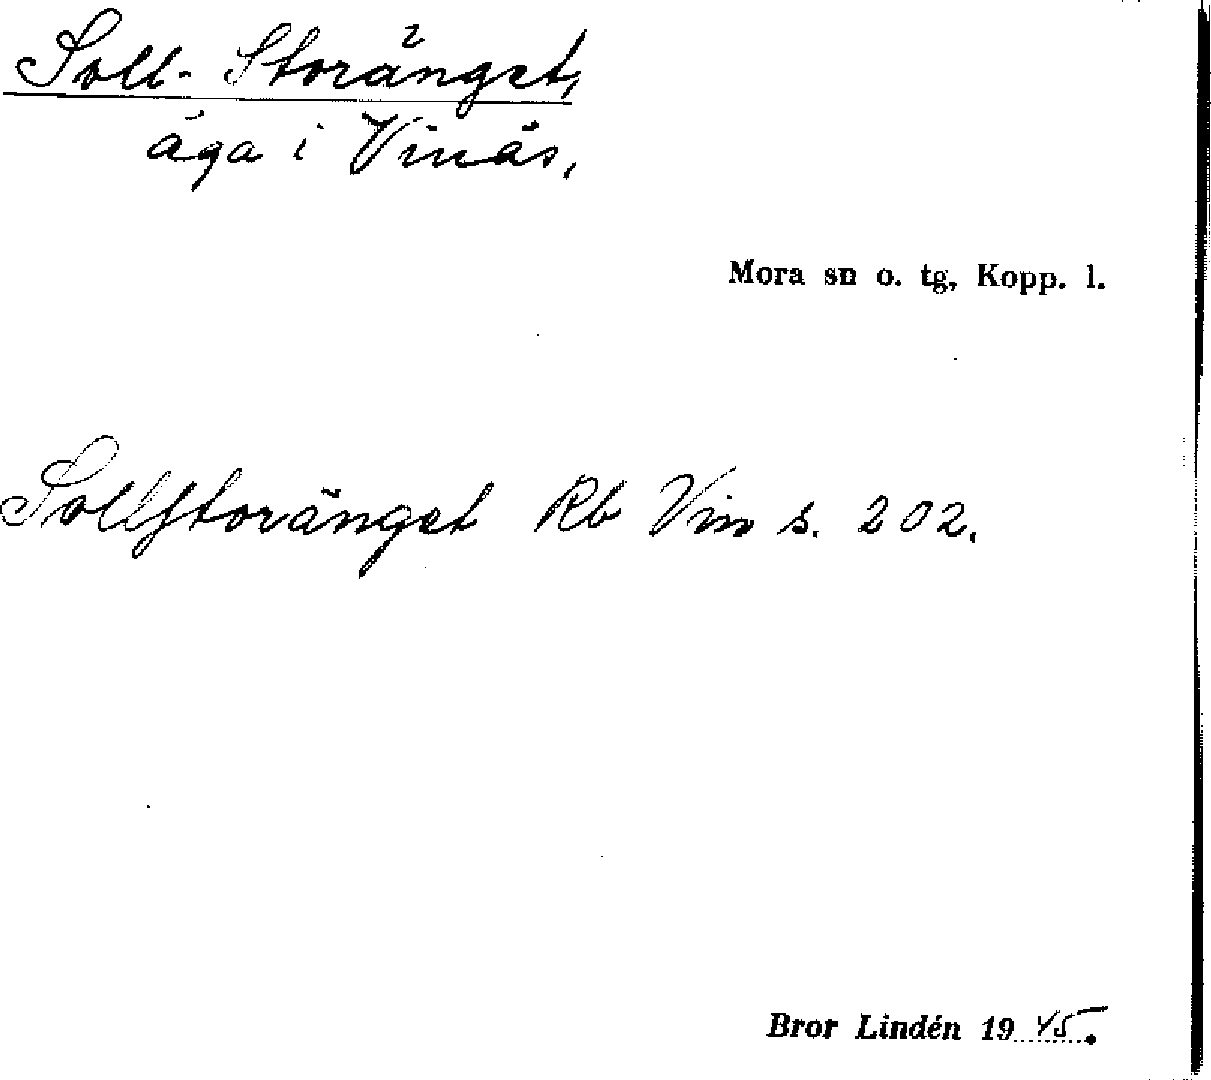 Soll-Storänget,
äga i Vinäs.
Mora sn o. tg, Kopp. l.
Sollstoränget Rb Vin s. 202.
Bror Lindén 1945.